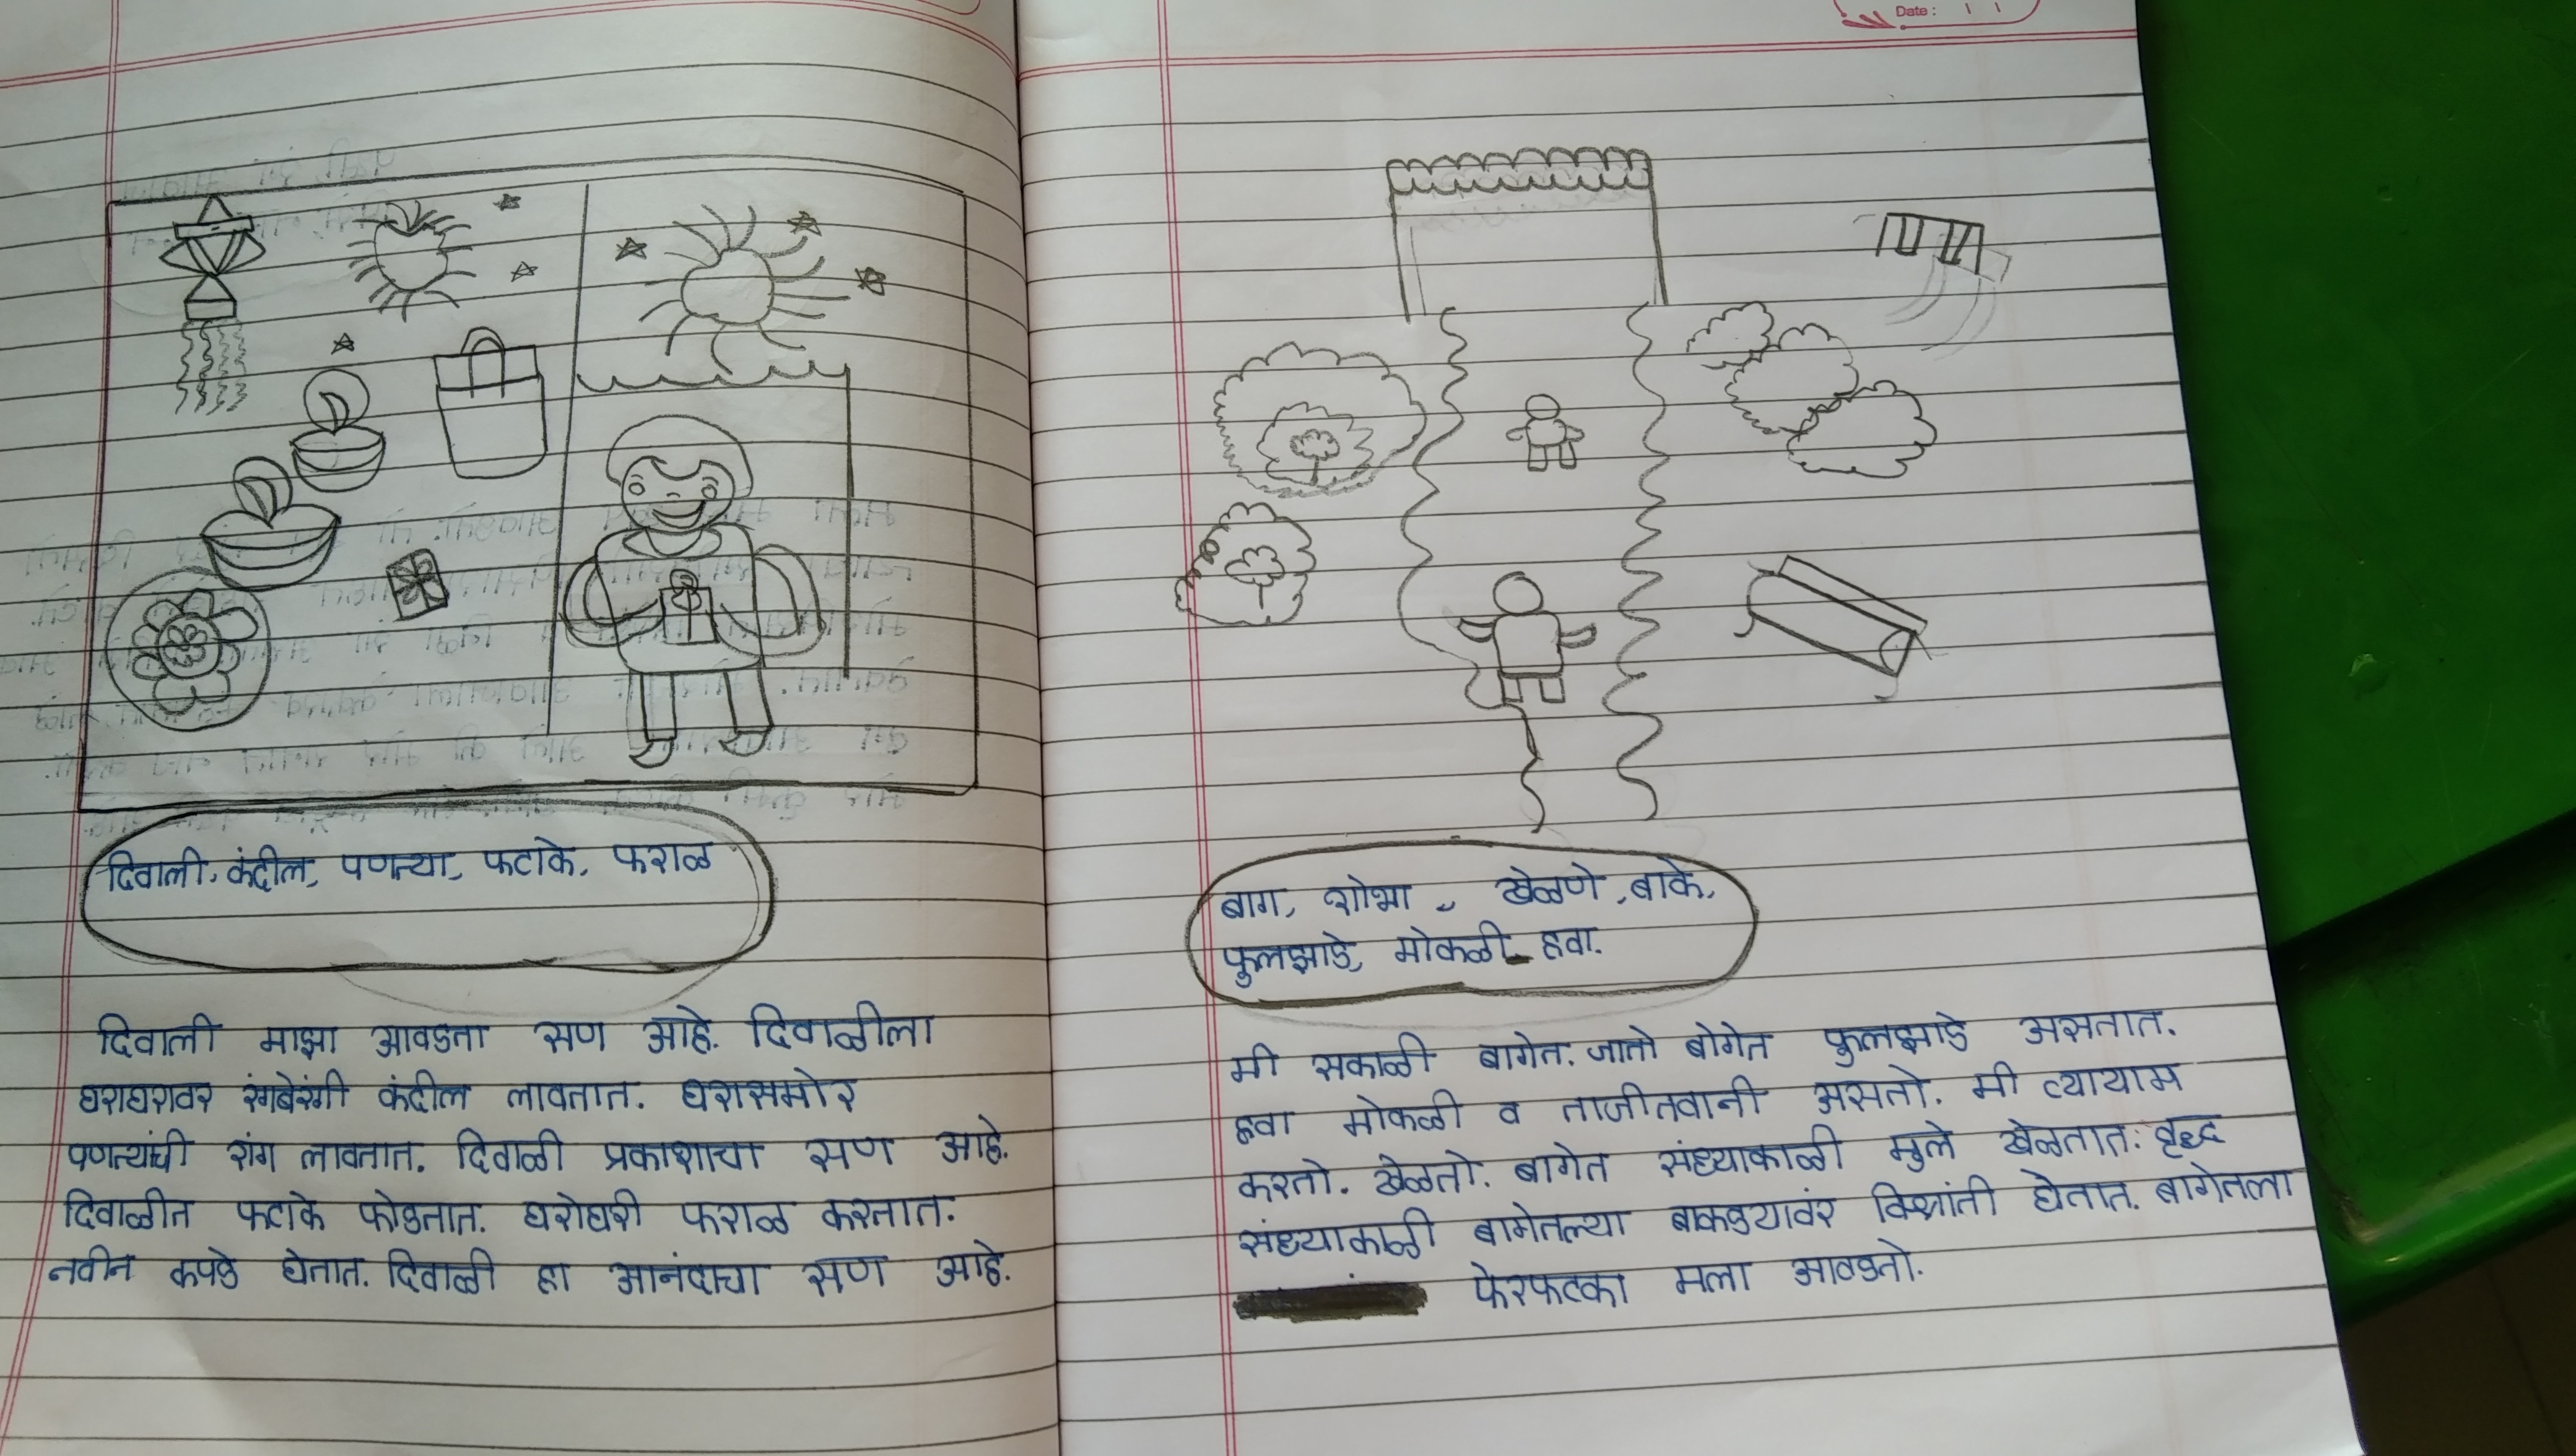 दिवाली, कंदील, पणत्या, फटाके, फराळ
दिवाली माझा आवडता सण आहे. दिवाळीला
घराघरावर रंगबेरंगी कंदील लावतात. घरासमोर
पणत्यांची रांग लावतात. दिवाळी प्रकाशाचा सण आहे.
दिवाळीत फटाके फोडतात. घरोघरी फराळ करतात.
नवीन कपडे घेतात. दिवाळी हा आनंदाचा सण आहे.
Date :
बाग, शोभा, खेळणे, बाके,
फुलझाडे, मोकळी हवा.
मी सकाळी बागेत. जातो बोगेत फुलझाडे असतात.
हवा मोकळी व ताजीतवानी असतो. मी व्यायाम
करतो. खेळतो. बागेत संध्याकाळी मुले खेळतात. वृध्द
संध्याकाळी बागेतल्या बाकड्यावर विश्रांती घेतात. बागेतला
फेरफटका मला आवडतो.